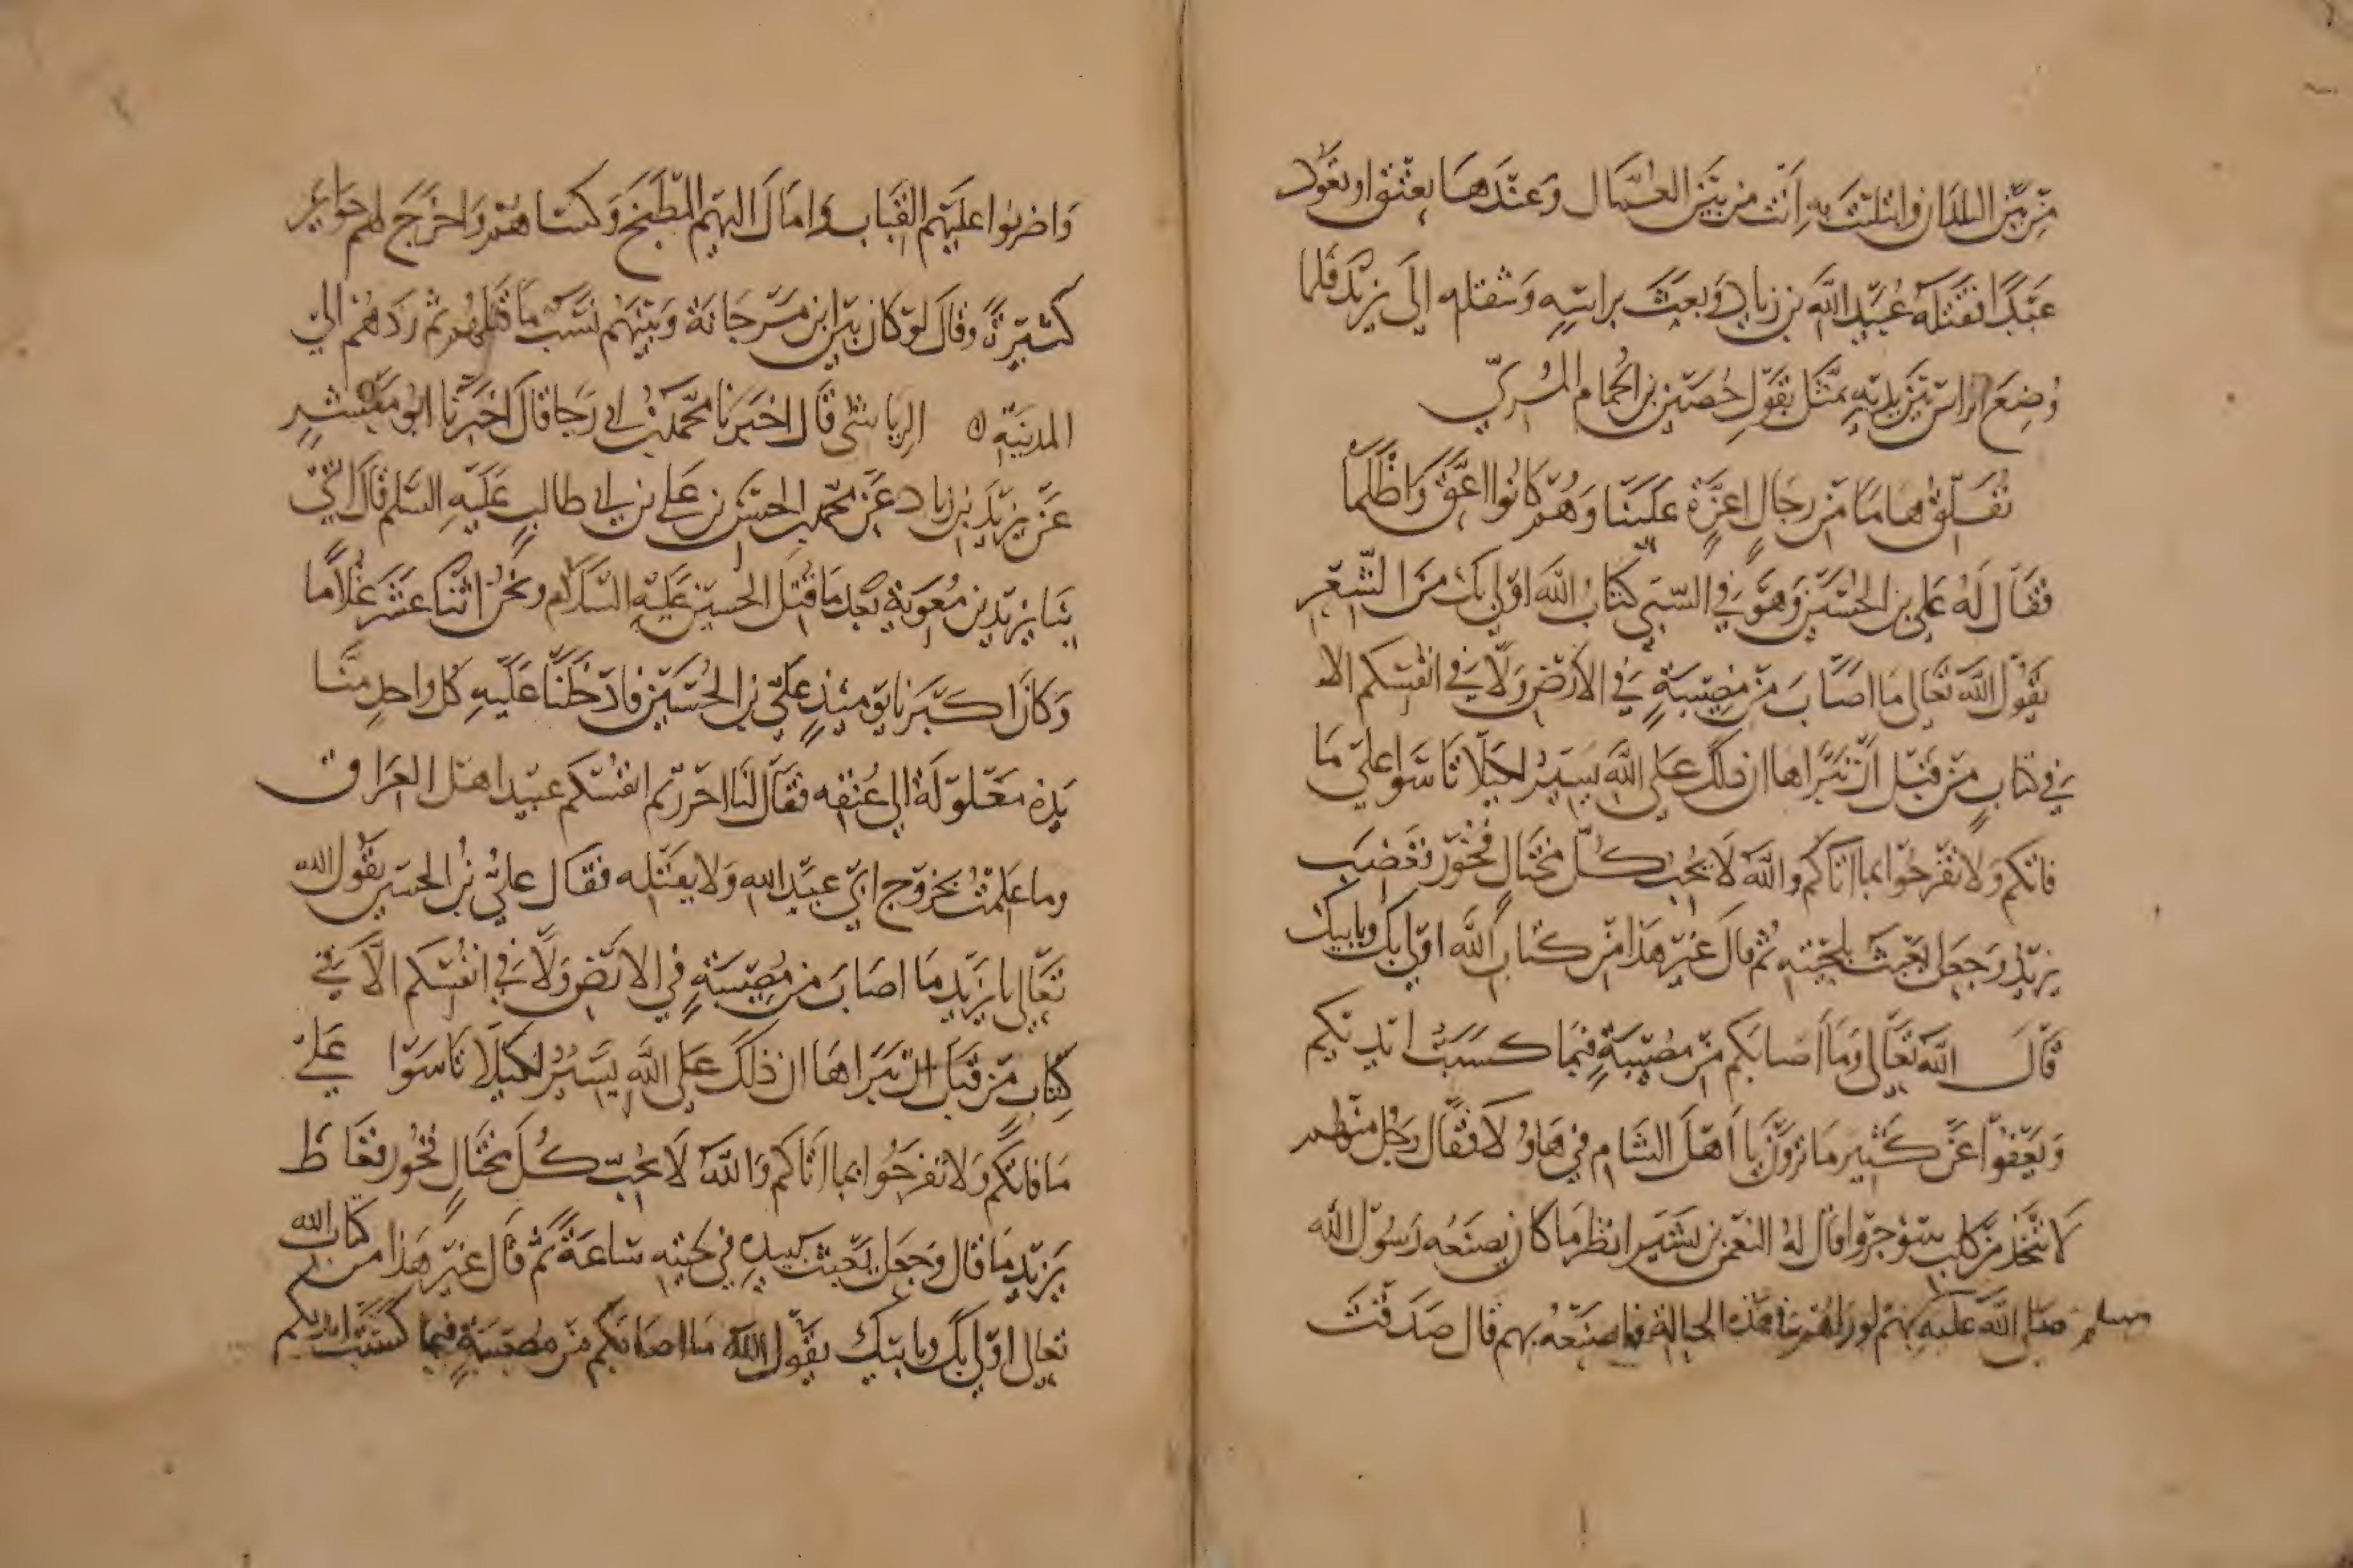 من بين البلدان وابتليت به انت من بين العمال وعندها يعتق او يعود
عبدا فقتله عبيد الله بن زياد وبعث براسه وثقله الى يزيد فلما
وضع الراس بين يديه تمثل بقول حصين بن الحمام المري
نفلق هاما من رجال اعزة علينا وهم كانوا اعق واظلما
فقال له علي بن الحسين وهو في السبي كتاب الله اولى بك من الشعر
يقول الله تعالى ما اصاب من مصيبة في الارض ولا في انفسكم الا
في كتاب من قبل ان نبراها ان ذلك على الله يسير لكيلا تاسوا على ما
فاتكم ولا تفرحوا بما اتاكم والله لا يحب كل مختال فخور فغضب
يزيد وجعل يعبث بلحيته ثم قال غير هذا من كتاب الله اولى بك وبابيك
قال الله تعالى وما اصابكم من مصيبة فيما كسبت ايديكم
ويعفوا عن كثير ما ترون يا اهل الشام في هاولا فقال رجل منهم
لا تتخذ من كلب سوء جروا قال له النعمن بن بشير انظر ما كان يصنعه رسول الله
صلى الله عليه وسلم بهم لو راهم في هذه الحالة فاصنعه بهم قال صدقت
واضربوا عليهم القباب وامال اليهم المطبخ وكساهم واخرج لهم جوايز
كثيرة وقال لو كان بين ابن مرجانة وبينهم نسب ما قتلهم ثم ردهم الى
المدينة ه الرياشي قال اخبرنا محمد بن ابي رجا قال اخبرنا ابو معشر
عن يزيد بن زياد عن محمد بن الحسن بن علي بن ابي طالب عليه السلم قال اتي
بنا يزيد بن معوية بعد ما قتل الحسين عليه السلام ونحن اثنا عشر غلاما
وكان اكبرنا يومئذ علي بن الحسين فادخلنا عليه كل واحد منا
يده مغلولة الى عنقه فقال لنا احررتم انفسكم عبيد اهل العراق
وما علمت بخروج ابي عبد الله ولا بقتله فقال علي بن الحسين يقول الله
تعالى يا يزيد ما اصاب من مصيبة في الارض ولا في انفسكم الا في
كتاب من قبل ان نبراها ان ذلك على الله يسير لكيلا تاسوا على
ما فاتكم ولا تفرحوا بما اتاكم والله لا يحب كل مختال فخور فغاظ
يزيد ما قال وجعل يعبث بيده في لحيته ساعة ثم قال غير هذا من كتاب الله
تعالى اولى بك وبابيك يقول الله ما اصابكم من مصيبة فيما كسبت ايديكم